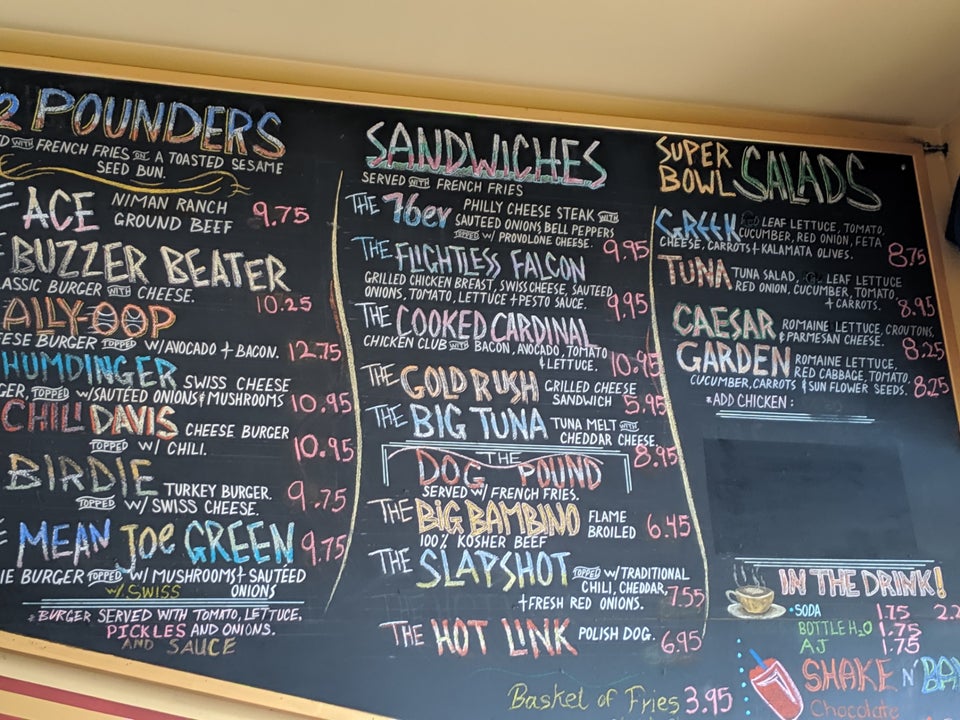 2 POUNDERS
D WITH FRENCH FRIES ON A TOASTED SESAME
SEED BUN.
E ACE NIMAN RANCH
GROUND BEEF 9.75
E BUZZER BEATER
ASSIC BURGER WITH CHEESE. 10.25
ALLY-OOP
EESE BURGER TOPPED W/AVOCADO + BACON. 12.75
HUMDINGER SWISS CHEESE
GER TOPPED W/SAUTÉED ONIONS & MUSHROOMS 10.95
CHILI DAVIS CHEESE BURGER
TOPPED W/ CHILI. 10.95
BIRDIE TURKEY BURGER.
TOPPED W/ SWISS CHEESE. 9.75
E MEAN JOE GREEN 9.75
IE BURGER TOPPED W/MUSHROOMS + SAUTÉED
W/ SWISS ONIONS
*BURGER SERVED WITH TOMATO, LETTUCE,
PICKLES AND ONIONS.
AND SAUCE
SANDWICHES
SERVED WITH FRENCH FRIES
THE 76er PHILLY CHEESE STEAK WITH
SAUTEED ONIONS BELL PEPPERS
TOPPED W/ PROVOLONE CHEESE. 9.95
THE FLIGHTLESS FALCON
GRILLED CHICKEN BREAST, SWISS CHEESE, SAUTEED
ONIONS, TOMATO, LETTUCE + PESTO SAUCE. 9.95
THE COOKED CARDINAL
CHICKEN CLUB WITH BACON, AVOCADO, TOMATO
& LETTUCE. 10.95
THE GOLD RUSH GRILLED CHEESE
SANDWICH 5.95
THE BIG TUNA TUNA MELT WITH
CHEDDAR CHEESE. 8.95
THE
DOG POUND
SERVED W/ FRENCH FRIES.
THE BIG BAMBINO FLAME
BROILED 6.45
100% KOSHER BEEF
THE SLAPSHOT TOPPED W/TRADITIONAL
CHILI, CHEDDAR, 7.55
+FRESH RED ONIONS.
THE HOT LINK POLISH DOG. 6.95
Basket of Fries 3.95
SUPER
BOWL SALADS
GREEK LEAF LETTUCE, TOMATO,
CUCUMBER, RED ONION, FETA
CHEESE, CARROTS + KALAMATA OLIVES. 8.75
TUNA TUNA SALAD, LEAF LETTUCE
RED ONION, CUCUMBER, TOMATO
+ CARROTS. 8.95
CAESAR ROMAINE LETTUCE, CROUTONS,
& PARMESAN CHEESE. 8.25
GARDEN ROMAINE LETTUCE,
RED CABBAGE, TOMATO,
CUCUMBER, CARROTS & SUN FLOWER SEEDS. 8.25
*ADD CHICKEN:
IN THE DRINK!
•SODA 1.75 2.2
BOTTLE H2O 1.75
AJ 1.75
SHAKE N' BA
Chocolate